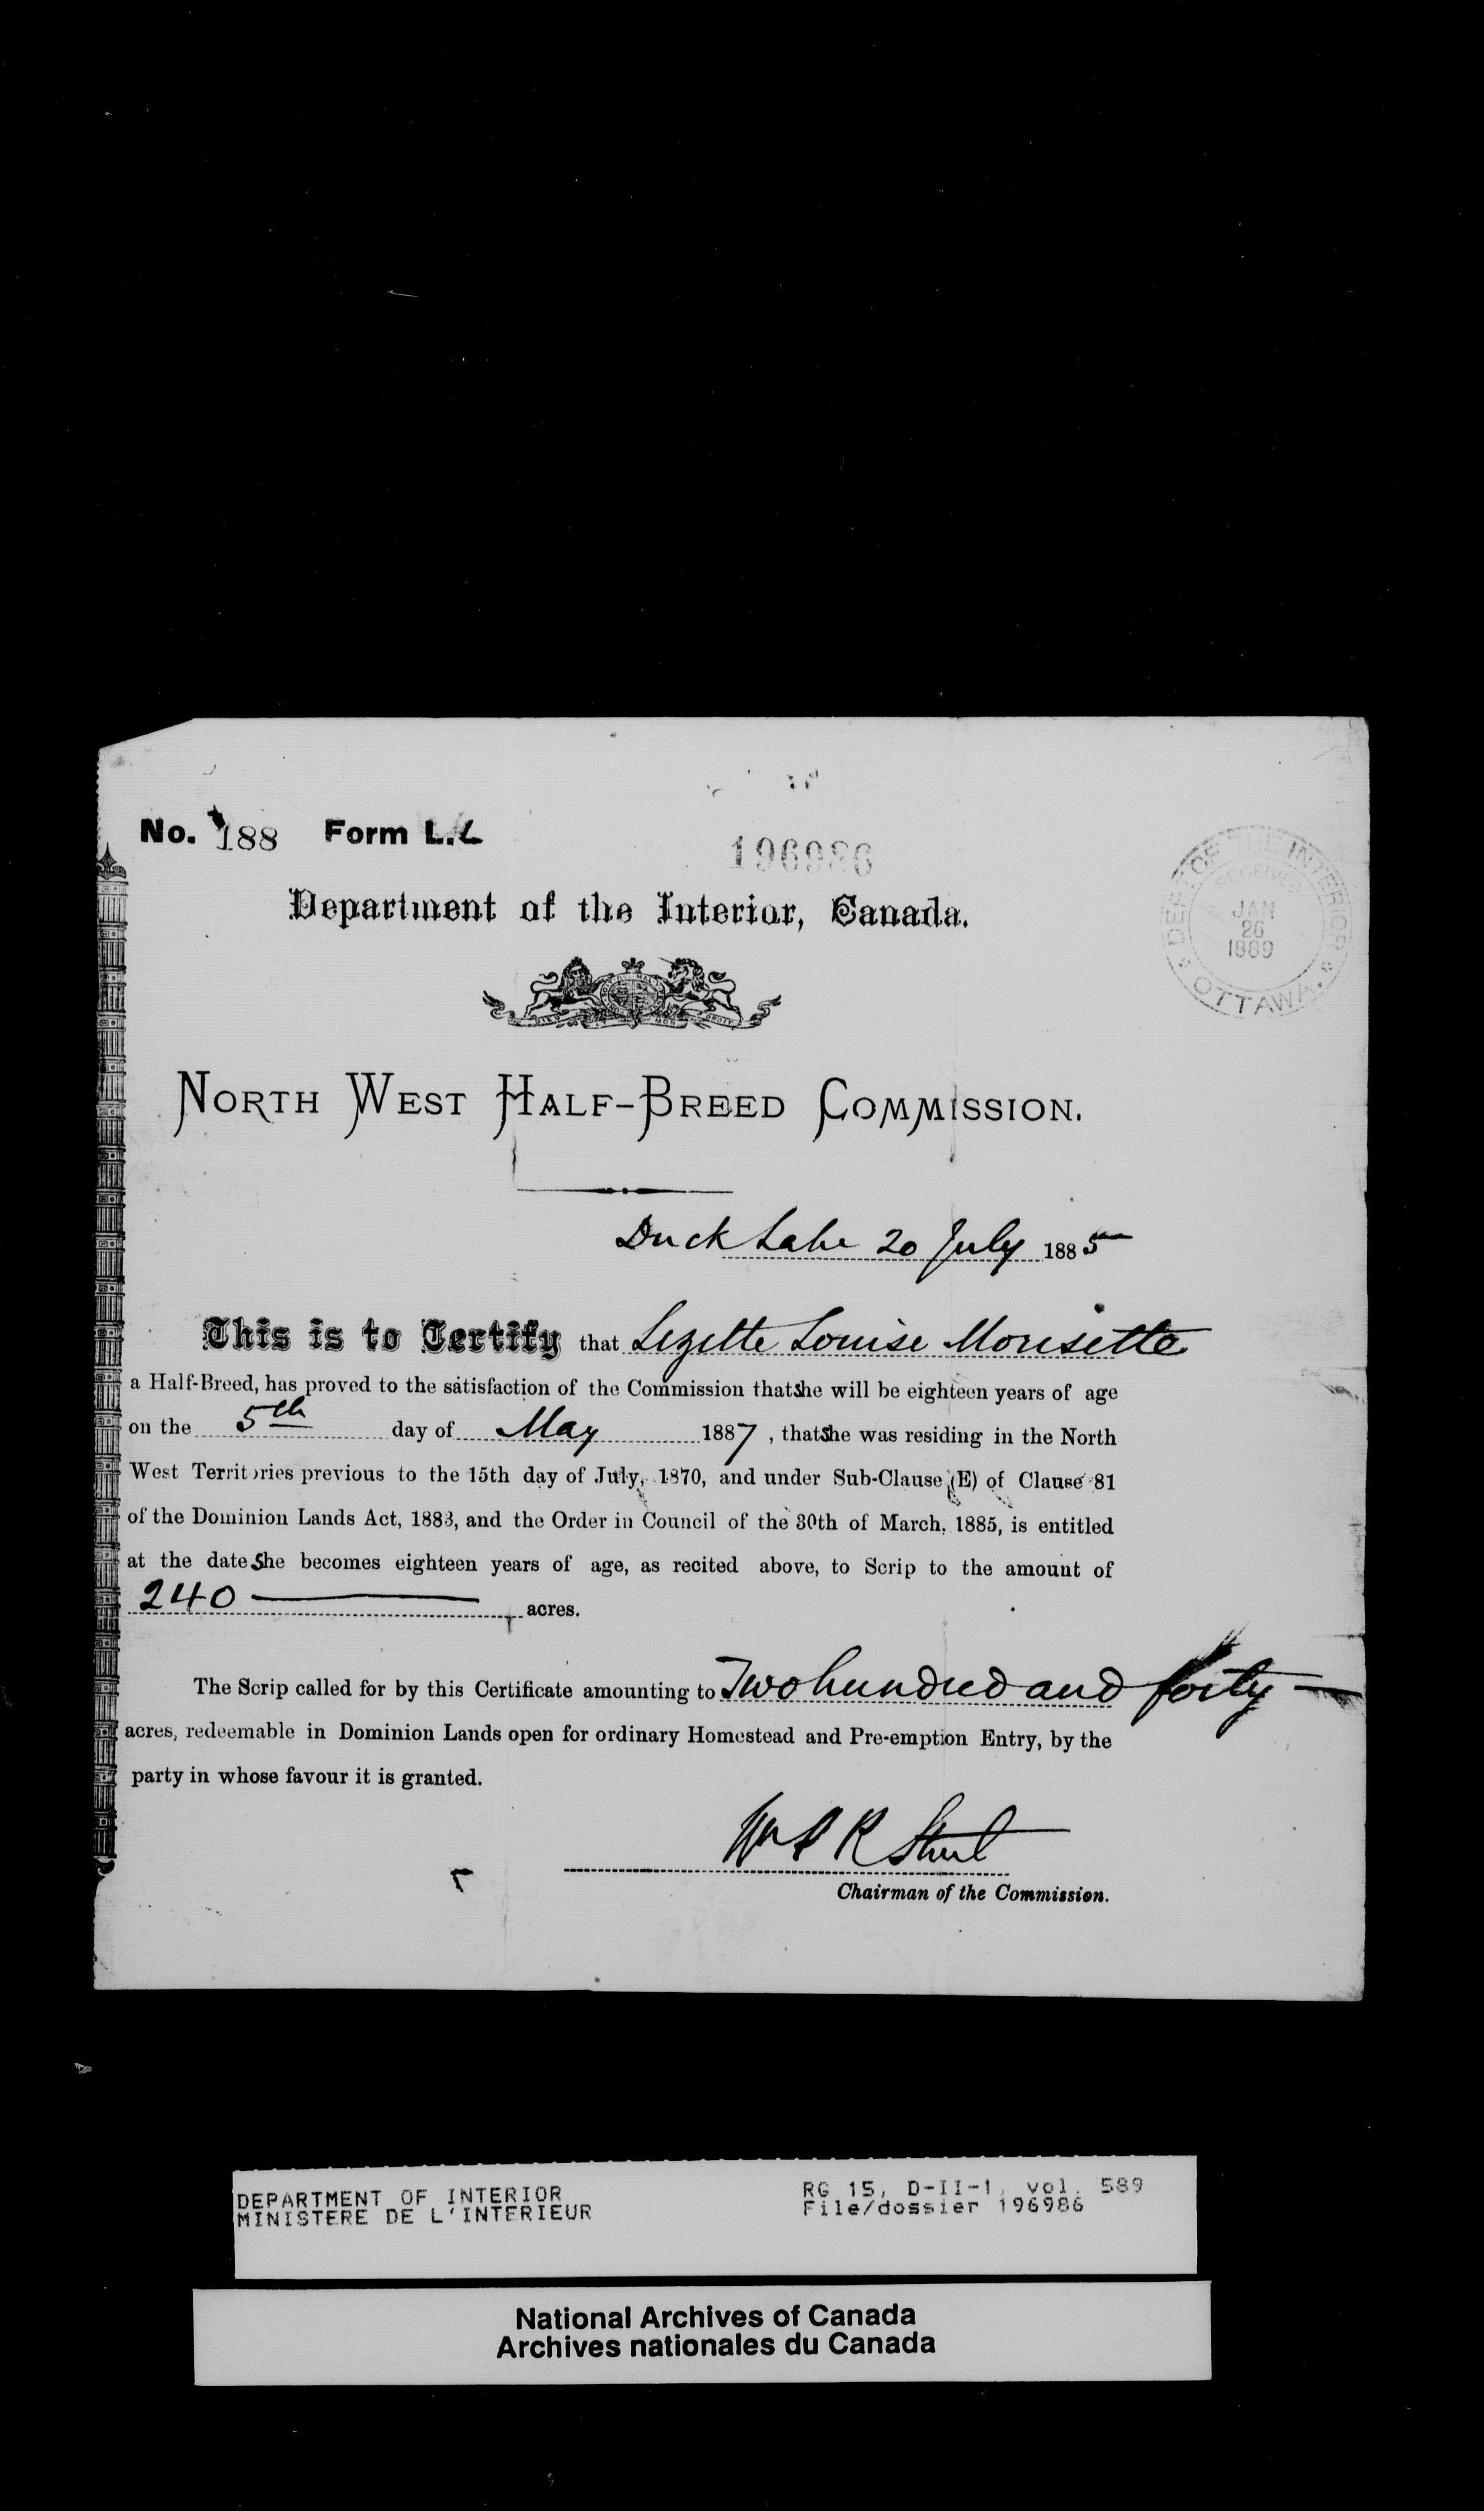 No. 188 Form L.L
196986
DEPT OF THE INTERIOR
RECEIVED
JAN
26
1889
OTTAWA.
Department of the Interior, Canada.
North West Half-Breed Commission.
Duck Lake 20 July 1885
This is to Certify that Lizette Louise Morisette
a Half-Breed, has proved to the satisfaction of the Commission that She will be eighteen years of age
on the 5th day of May 1887, that She was residing in the North
West Territories previous to the 15th day of July, 1870, and under Sub-Clause (E) of Clause 81
of the Dominion Lands Act, 1883, and the Order in Council of the 30th of March, 1885, is entitled
at the date She becomes eighteen years of age, as recited above, to Scrip to the amount of
240 acres.
The Scrip called for by this Certificate amounting to Two hundred and forty
acres, redeemable in Dominion Lands open for ordinary Homestead and Pre-emption Entry, by the
party in whose favour it is granted.
Chairman of the Commission.
DEPARTMENT OF INTERIOR
MINISTERE DE L'INTERIEUR
RG 15, D-II-1, vol. 589
File/dossier 196986
National Archives of Canada
Archives nationales du Canada